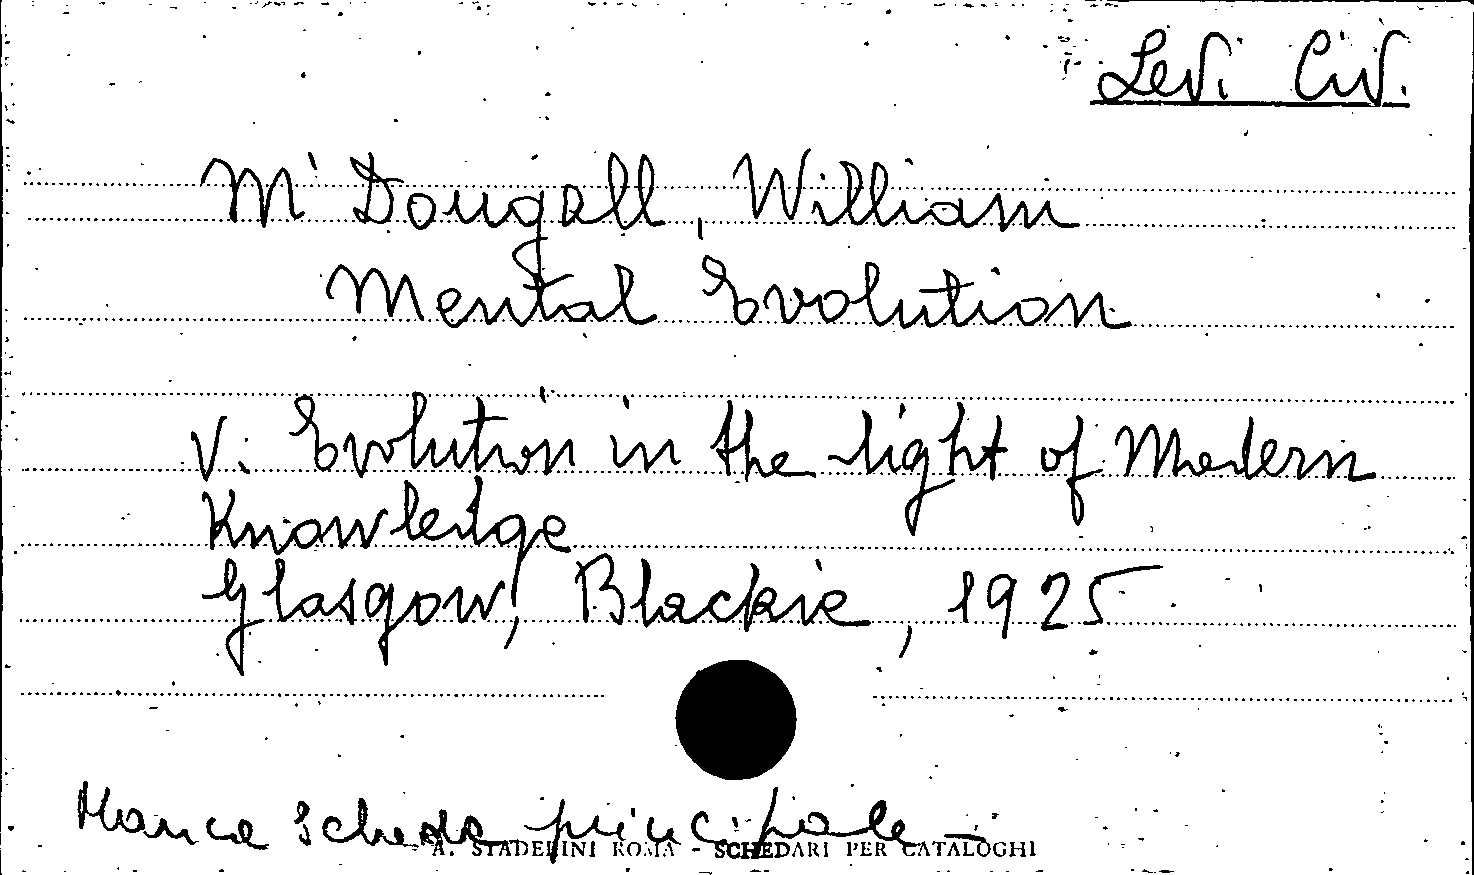 Levi Civ.
M' Dougall, William
Mental Evolution
V. Evolution in the light of Modern
Knowledge
Glasgow, Blackie, 1925
Manca scheda principale -
A. STADERINI ROMA - SCHEDARI PER CATALOGHI